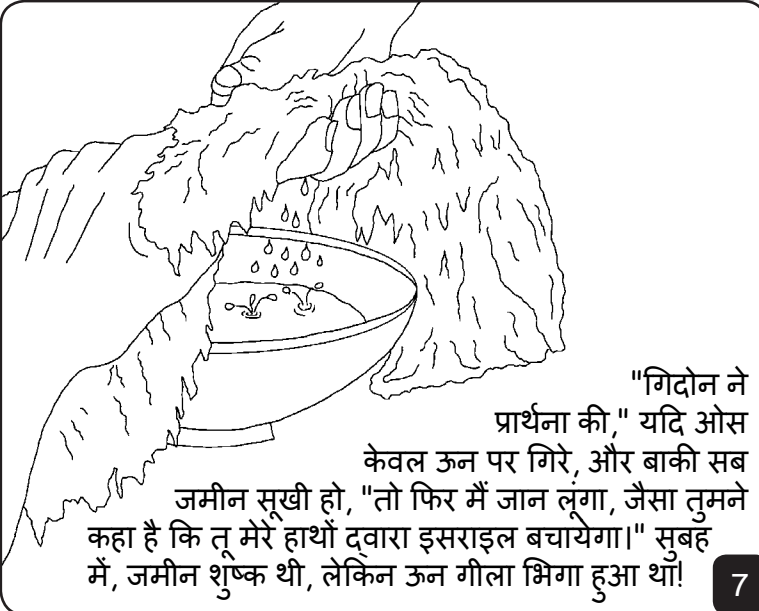 "गिदोन ने
प्रार्थना की," यदि ओस
केवल ऊन पर गिरे, और बाकी सब
जमीन सूखी हो, "तो फिर मैं जान लूंगा, जैसा तुमने
कहा है कि तू मेरे हाथों द्वारा इसराइल बचायेगा।" सुबह
में, जमीन शुष्क थी, लेकिन ऊन गीला भिगा हुआ था!
7